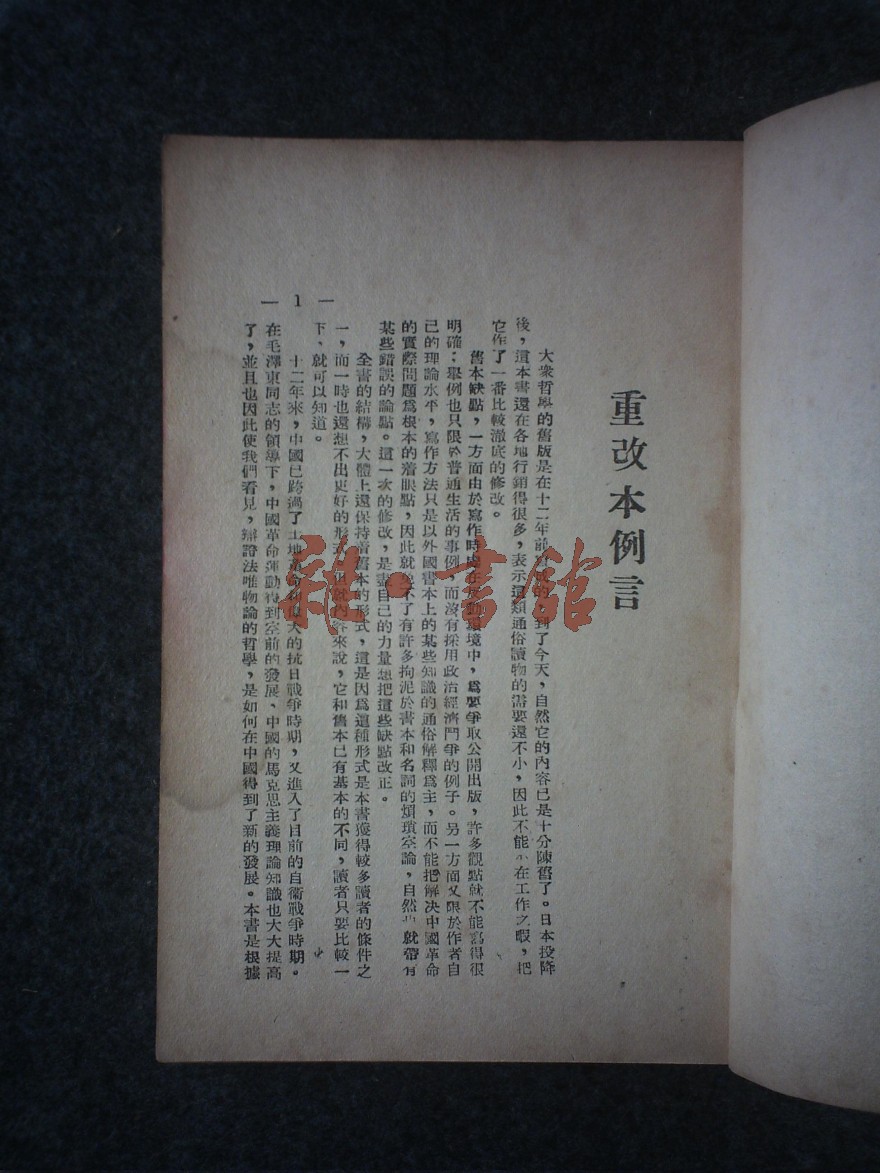 重改本例言
大衆哲學的舊版是在十二年前寫成的到了今天，自然它的內容已是十分陳舊了。日本投降
後，這本書還在各地行銷得很多，表示這類通俗讀物的需要還不小，因此不能不在工作之暇，把
它作了一番比較澈底的修改。
舊本缺點，一方面由於寫作時處在反動環境中，爲要爭取公開出版，許多觀點就不能寫得很
明確；舉例也只限於普通生活的事例，而沒有採用政治經濟鬥爭的例子。另一方面又限於作者自
己的理論水平，寫作方法只是以外國書本上的某些知識的通俗解釋爲主，而不能把解決中國革命
的實際問題爲根本的着眼點，因此就免不了有許多拘泥於書本和名詞的煩瑣空論，自然也就帶有
某些錯誤的論點。這一次的修改，是盡自己的力量想把這些缺點改正。
全書的結構，大體上還保持着舊本的形式，這是因爲這種形式是本書獲得較多讀者的條件之
一，而一時也還想不出更好的形式，但就內容來說，它和舊本已有基本的不同，讀者只要比較一
下，就可以知道。
十二年來，中國已跨過了土地革命和偉大的抗日戰爭時期，又進入了目前的自衛戰爭時期。
在毛澤東同志的領導下，中國革命運動得到空前的發展、中國的馬克思主義理論知識也大大提高
了，並且也因此使我們看見，辯證法唯物論的哲學，是如何在中國得到了新的發展。本書是根據
— 1 —
雜·書館